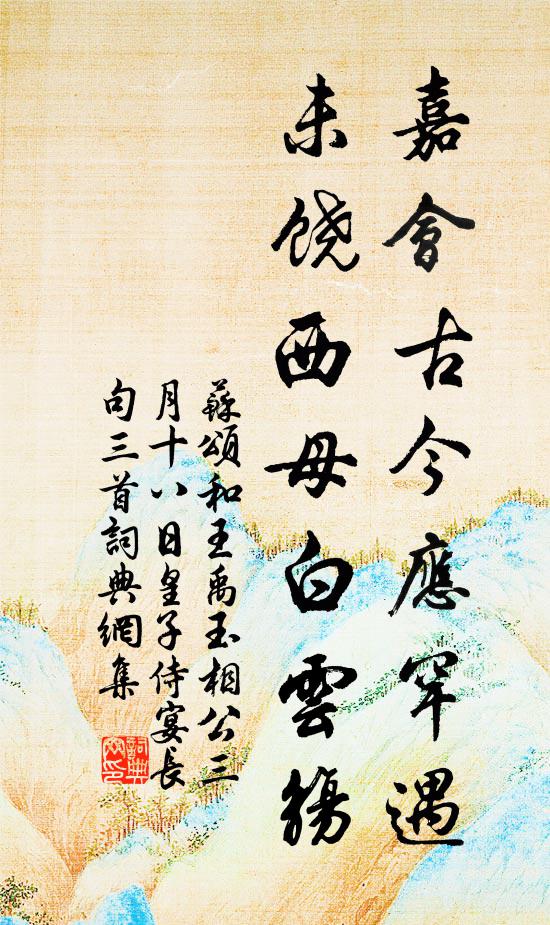 嘉會古今應罕遇
未饒西母白雲觴
蘇頌和王禹玉相公三
月十八日皇子侍宴長
句三首詞典網集
詞典
网印